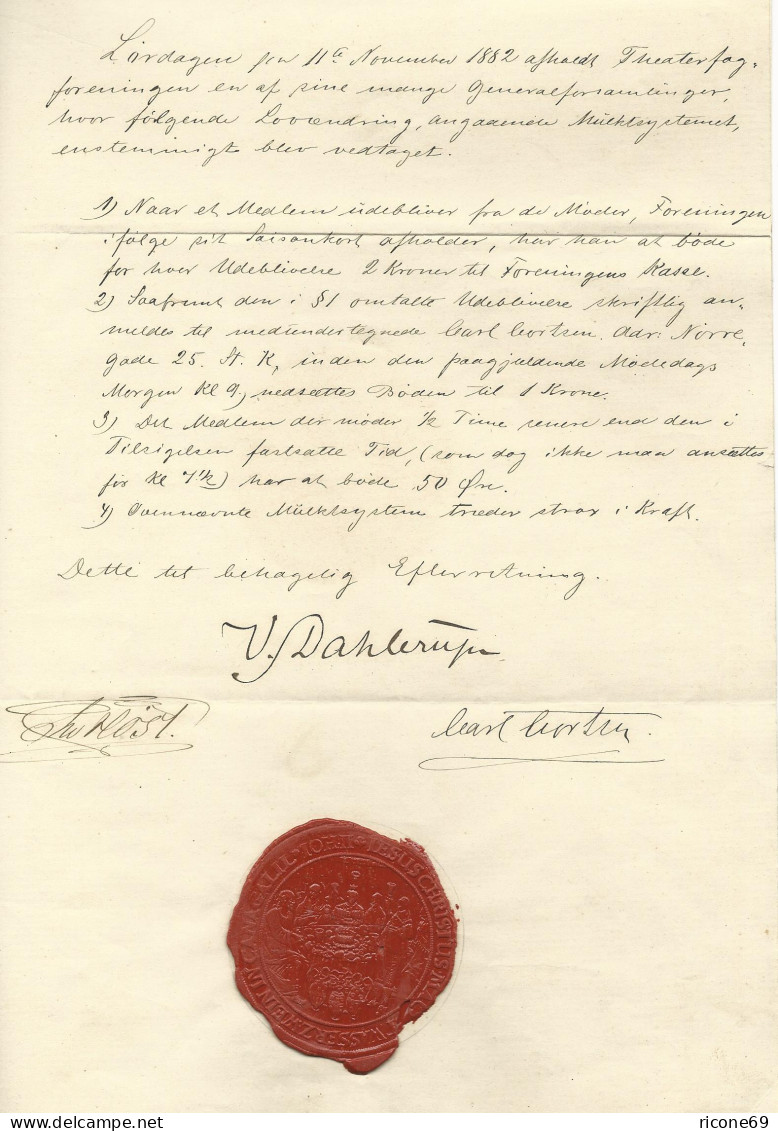 Lördagen den 11te November 1882 afholdt Theaterfag-
foreningen en af sine mange Generalforsamlinger,
hvor følgende Lovændring, angaaende Mulktsystemet,
enstemmigt blev vedtaget.
1) Naar et Medlem udebliver fra de Møder, Foreningen
ifølge sit Saisonkort afholder, har han at bøde
for hver Udeblivelse 2 Kroner til Foreningens Kasse.
2) Saafremt den i §1 omtalte Udeblivelse skriftlig an-
meldes til medundertegnede Carl Cortsen, Adr: Nørre,
gade 25. St. K, inden den paagjældende Mødedags
Morgen Kl 9, nedsættes Bøden til 1 Krone.
3) Det Medlem der møder 1/2 Time senere end den i
Tilsigelsen fastsatte Tid, (som dog ikke maa ansættes
før Kl 7 1/2) har at bøde 50 Øre.
4) Ovennævnte Mulktsystem træder strax i Kraft.
Dette til behagelig Efterretning.
V. Dahlerup
Høst.
Carl Cortsen.
IESUS CHRISTUS WASSER ZU WEIN IN CANA GALIL IOH
ricone69